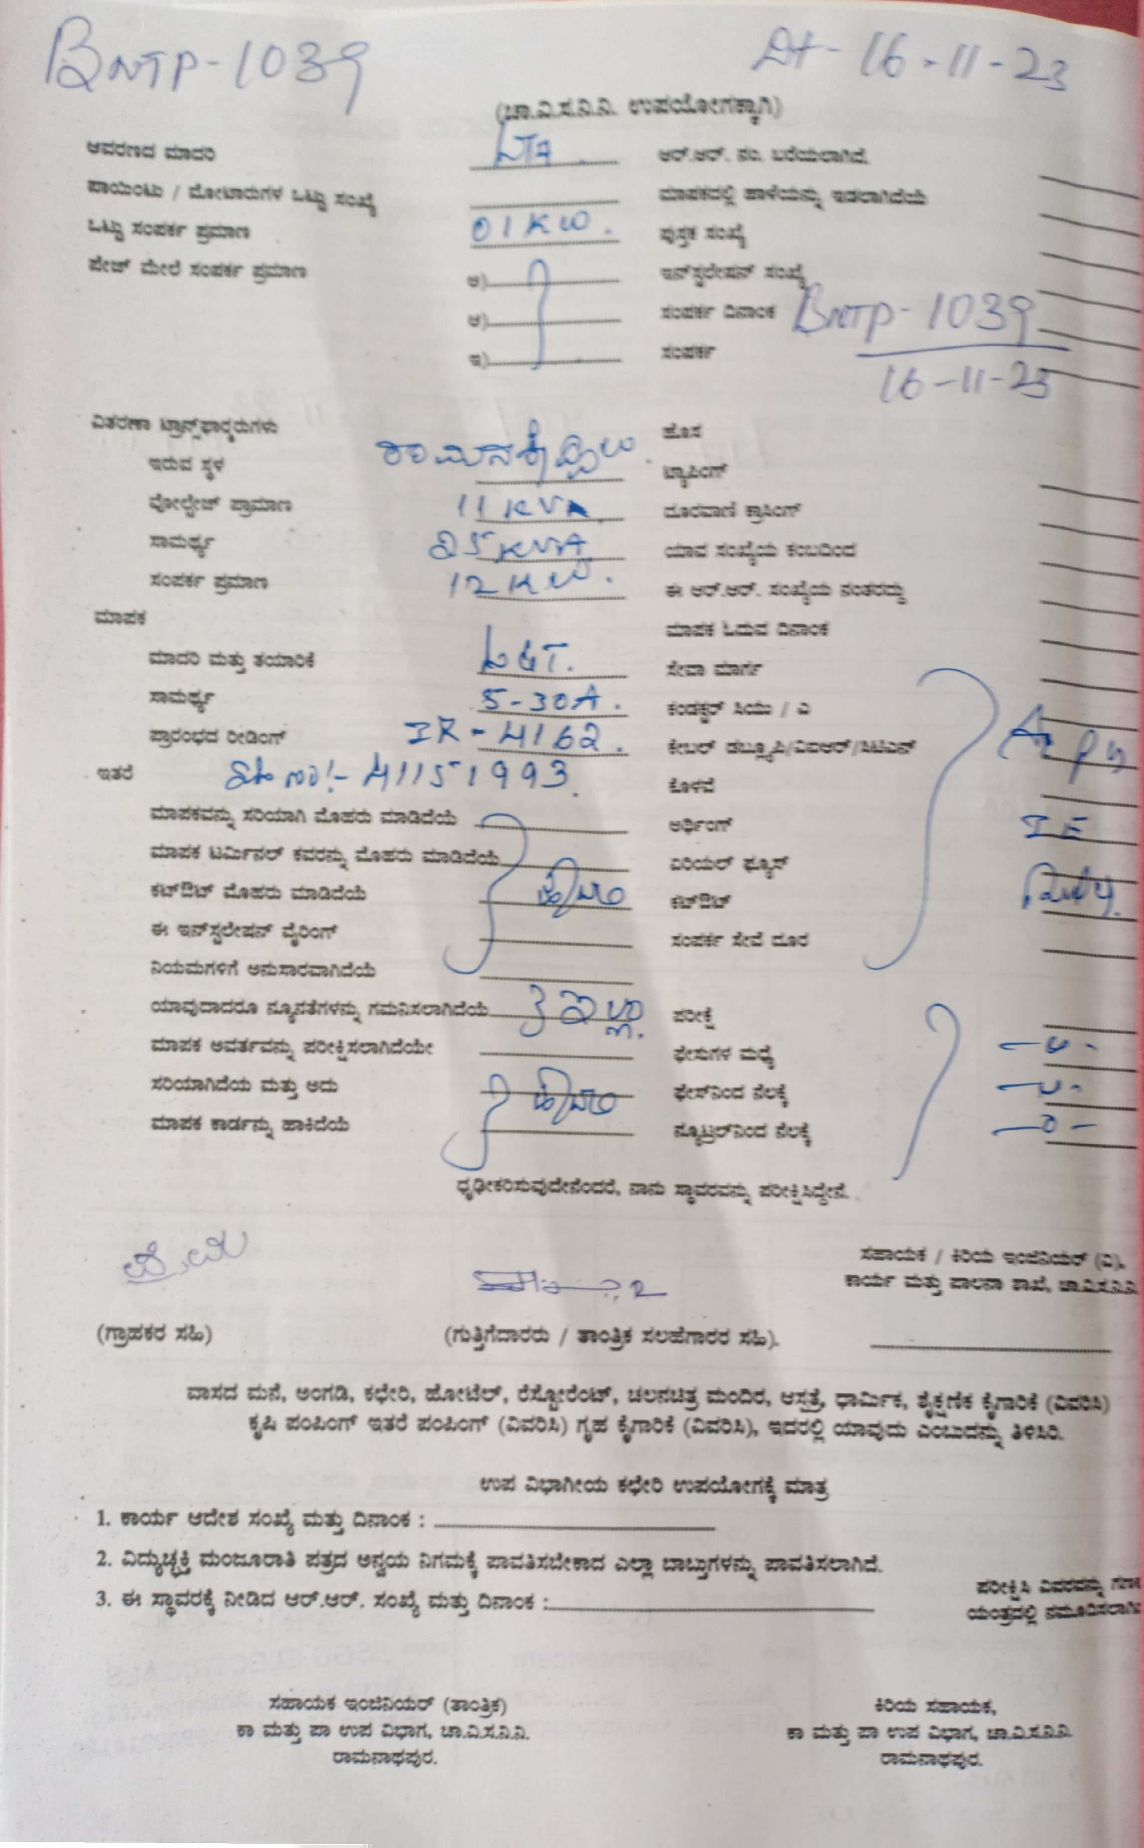 BNTP-1039
Dt - 16-11-23
(ಚಾ.ವಿ.ಸ.ನಿ.ನಿ. ಉಪಯೋಗಕ್ಕಾಗಿ)
ಆವರಣದ ಮಾದರಿ
ಆರ್.ಆರ್. ನಂ. ಬರೆಯಲಾಗಿದೆ.
ಪಾಯಿಂಟು / ಮೋಟಾರುಗಳ ಒಟ್ಟು ಸಂಖ್ಯೆ
ಮಾಪಕದಲ್ಲಿ ಹಾಳೆಯನ್ನು ಇಡಲಾಗಿದೆಯೆ
ಒಟ್ಟು ಸಂಪರ್ಕ ಪ್ರಮಾಣ 01 KW.
ಪುಸ್ತಕ ಸಂಖ್ಯೆ
ಪೇಚ್ ಮೇಲೆ ಸಂಪರ್ಕ ಪ್ರಮಾಣ ಅ)
ಇನ್‌ಸ್ಟಲೇಷನ್ ಸಂಖ್ಯೆ
ಆ)
ಸಂಪರ್ಕ ದಿನಾಂಕ BNTP-1039
ಇ)
ಸಂಪರ್ಕ 16-11-23
ವಿತರಣಾ ಟ್ರಾನ್ಸ್‌ಫಾರ್‍ಮರುಗಳು
ಹೊಸ
ಇರುವ ಸ್ಥಳ
ಟ್ಯಾಪಿಂಗ್
ವೋಲ್ಟೇಜ್ ಪ್ರಾಮಾಣ 11 KVA
ದೂರವಾಣಿ ಕ್ರಾಸಿಂಗ್
ಸಾಮರ್ಥ್ಯ 25 KVA
ಯಾವ ಸಂಖ್ಯೆಯ ಕಂಬದಿಂದ
ಸಂಪರ್ಕ ಪ್ರಮಾಣ 12 KW.
ಈ ಆರ್.ಆರ್. ಸಂಖ್ಯೆಯ ನಂತರದ್ದು
ಮಾಪಕ
ಮಾಪಕ ಓದುವ ದಿನಾಂಕ
ಮಾದರಿ ಮತ್ತು ತಯಾರಿಕೆ L&T.
ಸೇವಾ ಮಾರ್ಗ
ಸಾಮರ್ಥ್ಯ 5-30A.
ಕಂಡಕ್ಟರ್ ಸಿಯು / ಎ
ಪ್ರಾರಂಭದ ರೀಡಿಂಗ್ IR - 4162.
ಕೇಬಲ್ ಡಬ್ಲ್ಯೂಪಿ/ಎಐಆರ್/ಸಿಟಿಎನ್
ಇತರೆ Sl no:- 41151993.
ಕೊಳವೆ
ಮಾಪಕವನ್ನು ಸರಿಯಾಗಿ ಮೊಹರು ಮಾಡಿದೆಯೆ
ಅರ್ಥಿಂಗ್
ಮಾಪಕ ಟರ್ಮಿನಲ್ ಕವರನ್ನು ಮೊಹರು ಮಾಡಿದೆಯೆ
ಎರಿಯಲ್ ಫ್ಯೂಸ್
ಕಟ್‌ಔಟ್ ಮೊಹರು ಮಾಡಿದೆಯೆ ಹೌದು
ಕಟ್‌ಔಟ್
ಈ ಇನ್‌ಸ್ಟಲೇಷನ್ ವೈರಿಂಗ್
ಸಂಪರ್ಕ ಸೇವೆ ದೂರ
ನಿಯಮಗಳಿಗೆ ಅನುಸಾರವಾಗಿದೆಯೆ
ಯಾವುದಾದರೂ ನ್ಯೂನತೆಗಳನ್ನು ಗಮನಿಸಲಾಗಿದೆಯೆ ಇಲ್ಲ.
ಪರೀಕ್ಷೆ
ಮಾಪಕ ಆವರ್ತವನ್ನು ಪರೀಕ್ಷಿಸಲಾಗಿದೆಯೇ
ಫೇಸುಗಳ ಮಧ್ಯೆ
ಸರಿಯಾಗಿದೆಯ ಮತ್ತು ಅದು ಹೌದು
ಫೇಸ್‌ನಿಂದ ನೆಲಕ್ಕೆ
ಮಾಪಕ ಕಾರ್ಡನ್ನು ಹಾಕಿದೆಯೆ
ನ್ಯೂಟ್ರಲ್‌ನಿಂದ ನೆಲಕ್ಕೆ
ಧೃಢೀಕರಿಸುವುದೇನೆಂದರೆ, ನಾನು ಸ್ಥಾವರವನ್ನು ಪರೀಕ್ಷಿಸಿದ್ದೇನೆ.
ಸಹಾಯಕ / ಕಿರಿಯ ಇಂಜಿನಿಯರ್ (ವಿ),
ಕಾರ್ಯ ಮತ್ತು ಪಾಲನಾ ಶಾಖೆ, ಚಾ.ವಿ.ಸ.ನಿ.ನಿ
(ಗ್ರಾಹಕರ ಸಹಿ)
(ಗುತ್ತಿಗೆದಾರರು / ತಾಂತ್ರಿಕ ಸಲಹೆಗಾರರ ಸಹಿ).
ವಾಸದ ಮನೆ, ಅಂಗಡಿ, ಕಛೇರಿ, ಹೋಟೆಲ್, ರೆಸ್ಟೋರೆಂಟ್, ಚಲನಚಿತ್ರ ಮಂದಿರ, ಆಸ್ಪತ್ರೆ, ಧಾರ್ಮಿಕ, ಶೈಕ್ಷಣಿಕ ಕೈಗಾರಿಕೆ (ವಿವರಿಸಿ)
ಕೃಷಿ ಪಂಪಿಂಗ್ ಇತರೆ ಪಂಪಿಂಗ್ (ವಿವರಿಸಿ) ಗೃಹ ಕೈಗಾರಿಕೆ (ವಿವರಿಸಿ), ಇದರಲ್ಲಿ ಯಾವುದು ಎಂಬುದನ್ನು ತಿಳಿಸಿರಿ.
ಉಪ ವಿಭಾಗೀಯ ಕಛೇರಿ ಉಪಯೋಗಕ್ಕೆ ಮಾತ್ರ
1. ಕಾರ್ಯ ಆದೇಶ ಸಂಖ್ಯೆ ಮತ್ತು ದಿನಾಂಕ :
2. ವಿದ್ಯುಚ್ಛಕ್ತಿ ಮಂಜೂರಾತಿ ಪತ್ರದ ಅನ್ವಯ ನಿಗಮಕ್ಕೆ ಪಾವತಿಸಬೇಕಾದ ಎಲ್ಲಾ ಬಾಬ್ತುಗಳನ್ನು ಪಾವತಿಸಲಾಗಿದೆ.
3. ಈ ಸ್ಥಾವರಕ್ಕೆ ನೀಡಿದ ಆರ್.ಆರ್. ಸಂಖ್ಯೆ ಮತ್ತು ದಿನಾಂಕ :
ಪರೀಕ್ಷಿಸಿ ವಿವರವನ್ನು
ಯಂತ್ರದಲ್ಲಿ
ಸಹಾಯಕ ಇಂಜಿನಿಯರ್ (ತಾಂತ್ರಿಕ)
ಕಾ ಮತ್ತು ಪಾ ಉಪ ವಿಭಾಗ, ಚಾ.ವಿ.ಸ.ನಿ.ನಿ.
ರಾಮನಾಥಪುರ.
ಕಿರಿಯ ಸಹಾಯಕ,
ಕಾ ಮತ್ತು ಪಾ ಉಪ ವಿಭಾಗ, ಚಾ.ವಿ.ಸ.ನಿ.ನಿ.
ರಾಮನಾಥಪುರ.